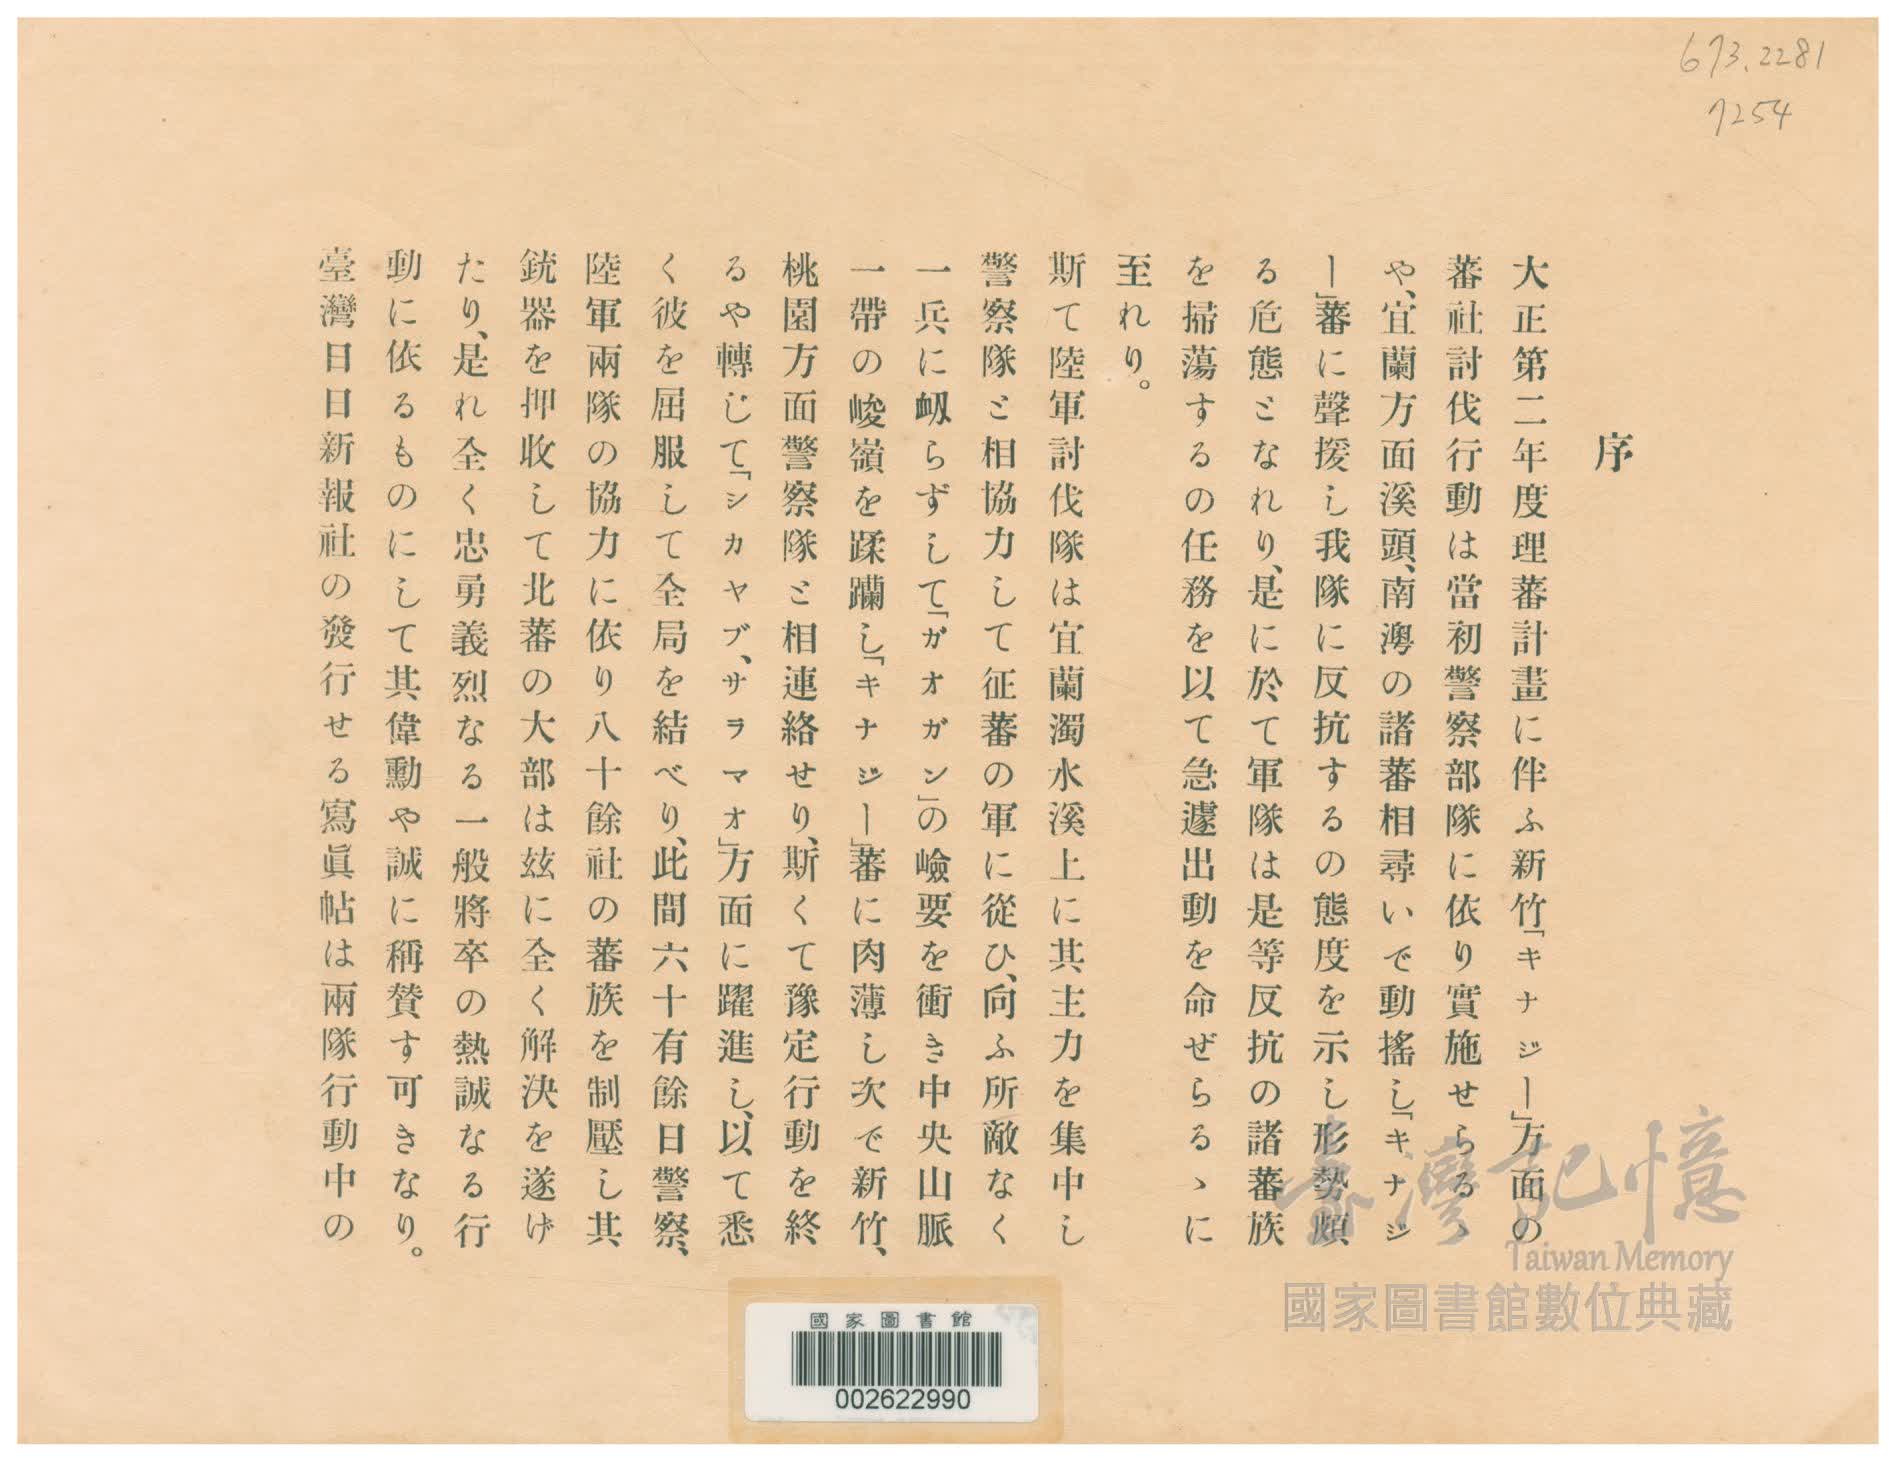 673.2281
7254
序
大正第二年度理蕃計畫に伴ふ新竹「キナジー」方面の
蕃社討伐行動は當初警察部隊に依り實施せらるゝ
や、宜蘭方面溪頭、南澳の諸蕃相尋いで動搖し「キナジ
ー」蕃に聲援し我隊に反抗するの態度を示し形勢頗
る危態となれり、是に於て軍隊は是等反抗の諸蕃族
を掃蕩するの任務を以て急遽出動を命ぜらるゝに
至れり。
斯て陸軍討伐隊は宜蘭濁水溪上に其主力を集中し
警察隊と相協力して征蕃の軍に從ひ、向ふ所敵なく
一兵に衂らずして「ガオガン」の嶮要を衝き中央山脈
一帶の峻嶺を蹂躙し「キナジー」蕃に肉薄し次で新竹、
桃園方面警察隊と相連絡せり、斯くて豫定行動を終
るや轉じて「シカヤブ、サラマオ」方面に躍進し、以て悉
く彼を屈服して全局を結べり、此間六十有餘日警察、
陸軍兩隊の協力に依り八十餘社の蕃族を制壓し其
銃器を押收して北蕃の大部は玆に全く解決を遂げ
たり、是れ全く忠勇義烈なる一般將卒の熱誠なる行
動に依るものにして其偉勳や誠に稱贊す可きなり。
臺灣日日新報社の發行せる寫眞帖は兩隊行動中の
臺灣記憶
Taiwan Memory
國家圖書館數位典藏
國家圖書館
002622990